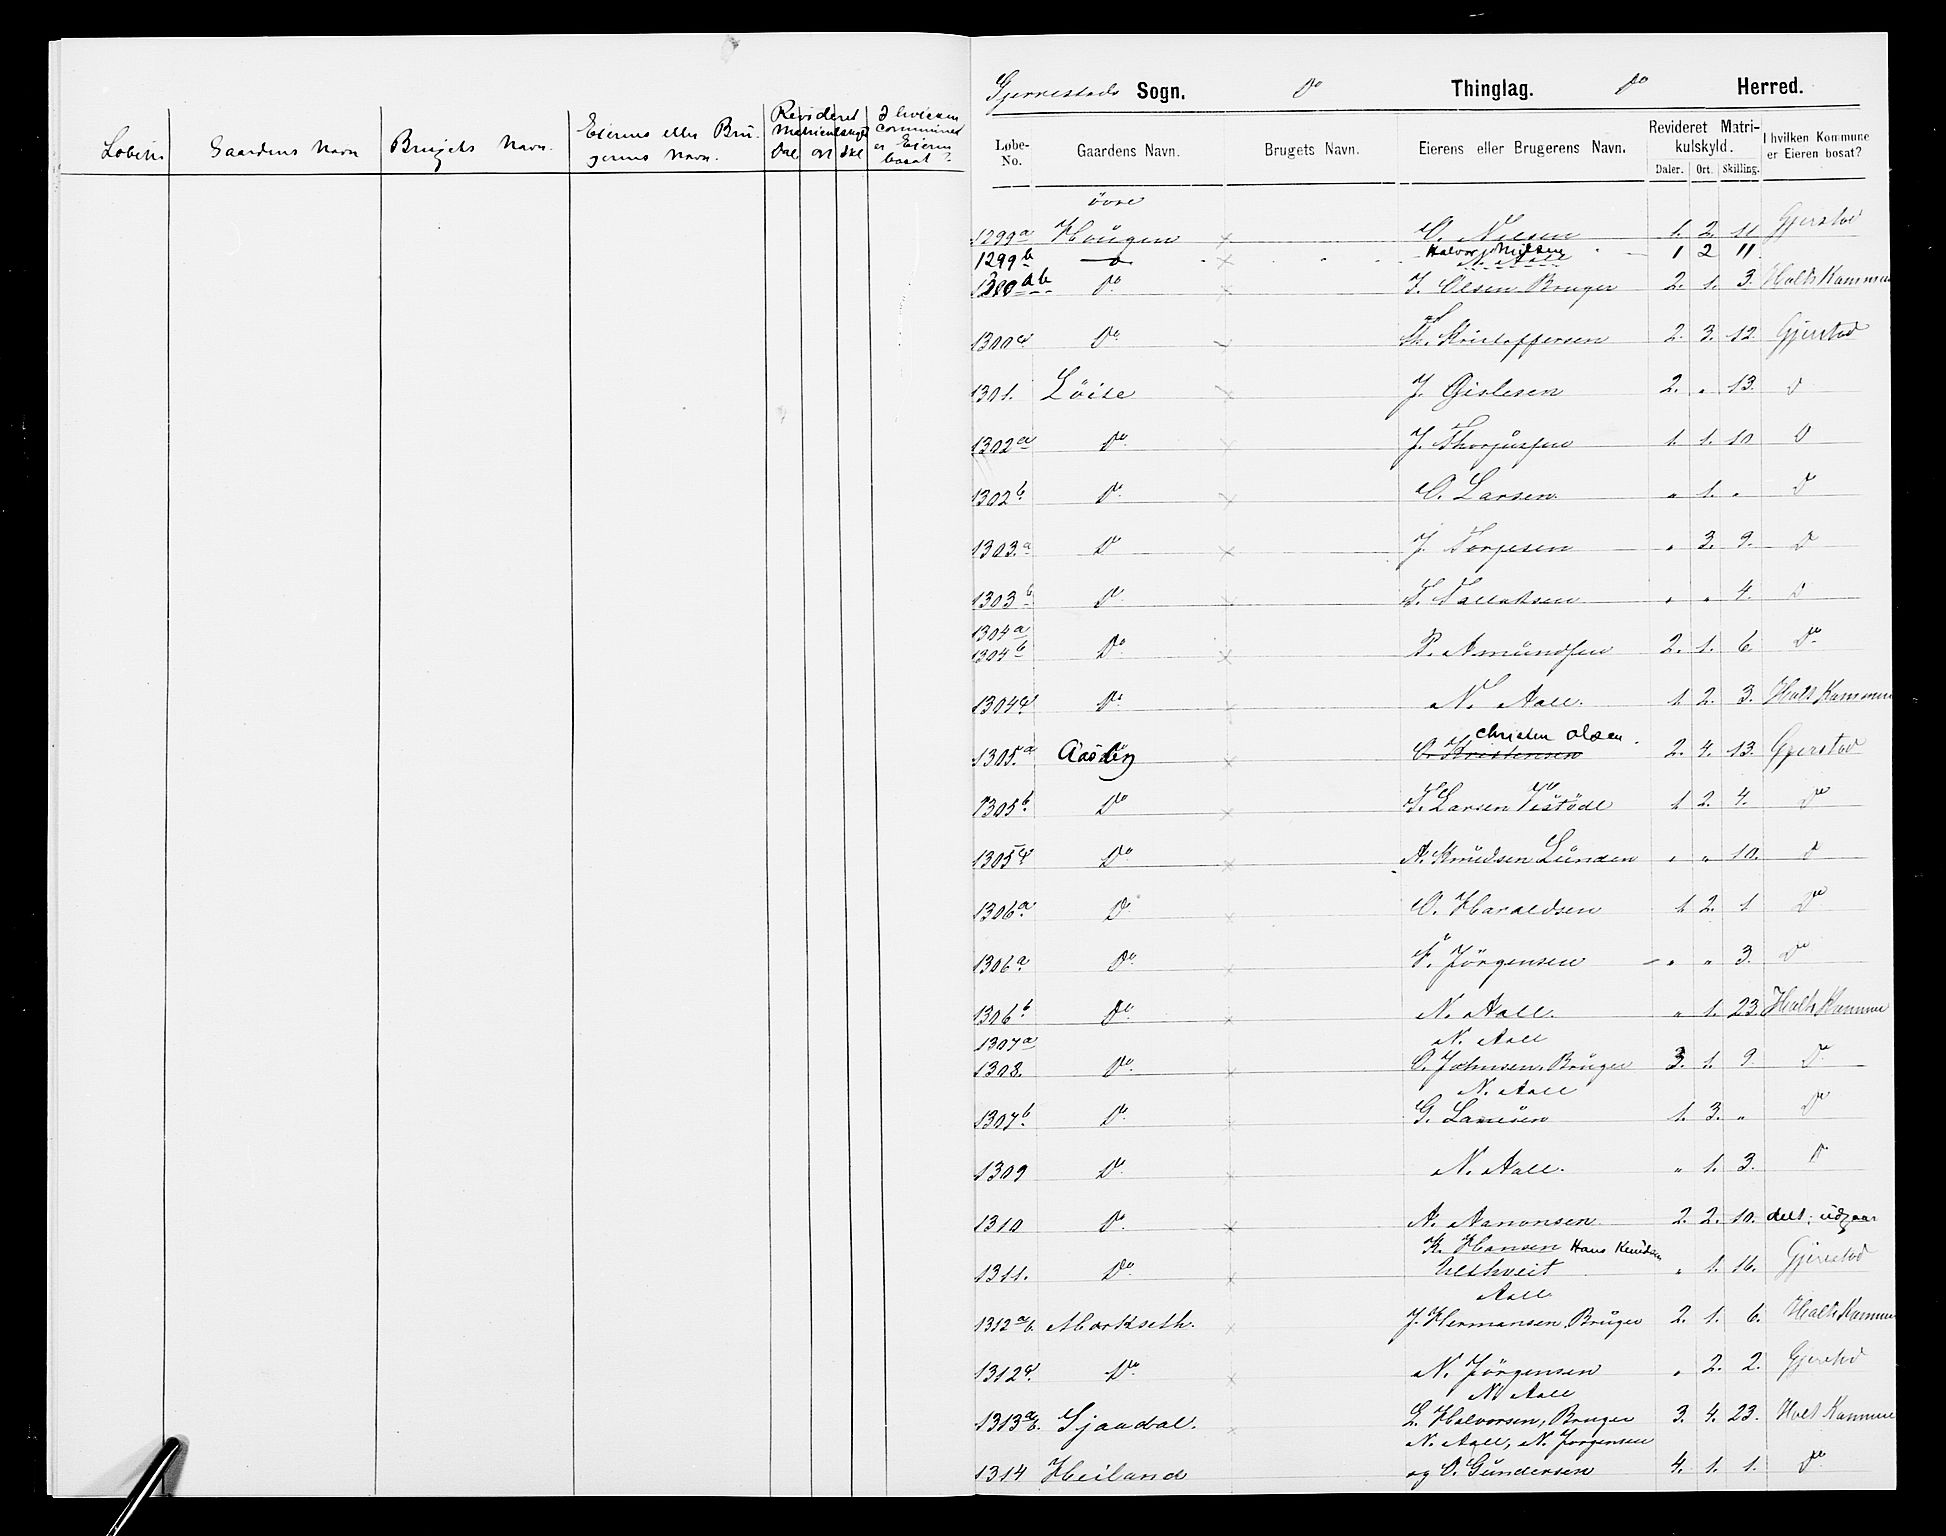 Løbenr Gaardens Navn Brugets Navn. Eierens eller Bru-
gerens Navn. Revideret
Matriculskyld
Dal ort skl I hvilken
commune
er Eieren
bosat?
Gjerrestads Sogn. Do Thinglag. Do Herred.
Løbe-No. Gaardens Navn. Brugets Navn. Eierens eller Brugerens Navn. Revideret Matri-kulskyld. Daler. Ort. Skilling. I hvilken Kommune er Eieren bosat?
övre
1299a Hougen O. Nilsen 1. 2. 11 Gjerstad
1299b Halvor Nilsen 1 2 11
N. Aall
1300ab Do J. Olsen Bruger 2. 1. 3. Holts Kommune
1300c Do Th. Kristoffersen 2. 3. 12. Gjerstad
1301. Löite J. Gislesen 2. " 13. D
1302a Do J. Thorjussen 1. 1. 10 D
1302b. Do O. Larsen " 1. " D
1303.a Do J. Torjesen " 3. 9. D
1303b Do T. Tallaksen " " 4. D
1304a
1304b Do P. Amundsen 2. 1. 6 Do
1304c Do N. Aall. 1. 2. 3. Holt Kommune
Christen Olsen.
1305.a Aasbø O. Kristensen 2. 4. 13. Gjerstad
1305b. Do T. Larsen 1. 2. 4. Do
1305c Do A. Knudsen Lunden " " 10. D
1306a. Do O. Haraldsen 1. 2. 1 Do
1306a. Do Jörgensen " " 3. Do
1306b Do N. Aall. " 1. 23. Holts Kommune
1307a N. Aall
1308. Do O. Johnsen, Bruger 3. 1. 9. Do
N. Aall
1307b Do G. 1. 3. " Do
1309 Do N. Aall. " 1. 3. D
1310 Do A. Aanonsen 2. 2. 10. delt; udgaar
K. Hansen Hans Knudsen
1311. Do Ulltveit " 1. 16. Gjerestad
Aall
1312ab. Morkseth. J. Hermansen, Bruger 2. 1. 6. Holts Kommune
1312c. Do N. Jörgensen " 2. 2. Gjerstad
N. Aall
1313ab. Gjaadal. L. Halvorsen, Bruger 3. 4. 23. Holt Kommune
N. Aall, N. Jørgensen
1314 Heiland og O. Gundersen 4. 1. 1. Do